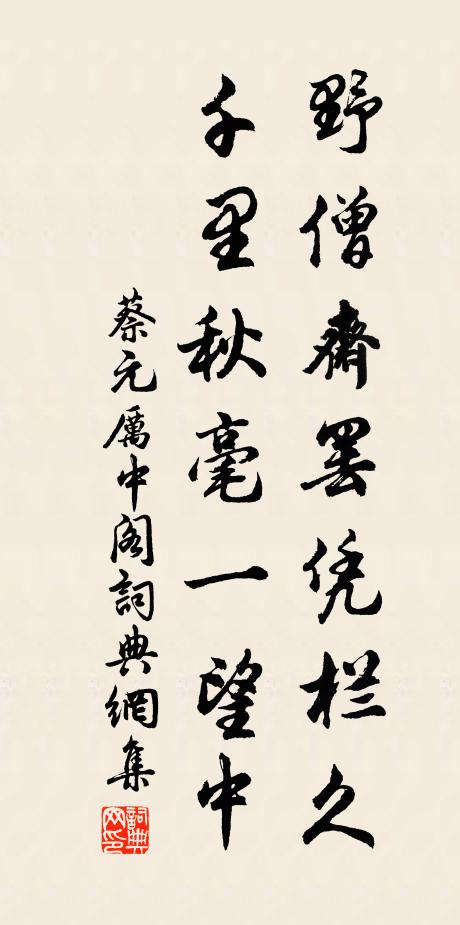 野僧齋罢凭栏久
千里秋毫一望中
蔡元厲中閣詞典網集
詞典网印